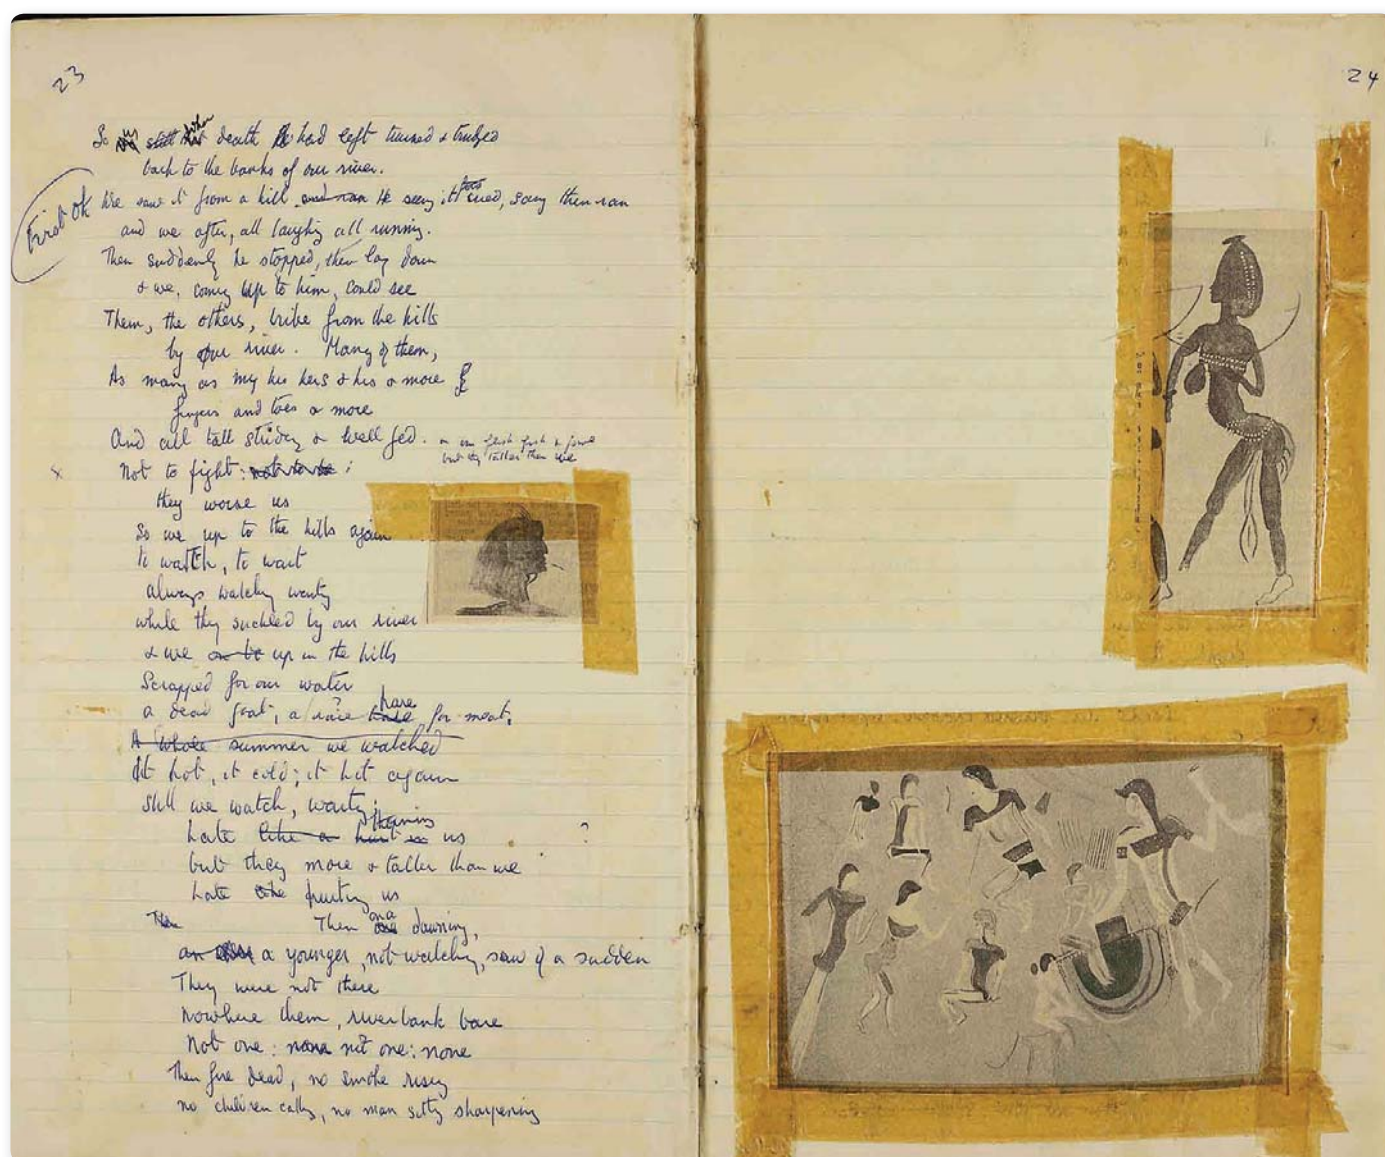 23
24
So death had left turned & trudged
back to the banks of our river.
First ok
We saw it from a hill and ran He seeing it turned, then ran
and we after, all laughing all running.
Then suddenly he stopped, then lay down
& we, coming up to him, could see
Them, the others, tribe from the hills
by our river. Many of them,
As many as my his hers & his & more
fingers and toes & more
And all tall striding & well fed.
but they taller than we
x Not to fight:
they worse us
So we up to the hills again
to watch, to wait
always watching waiting
while they suckled by our river
& we up in the hills
Scrapped for our water
a dead goat, a hare for meat,
A whole summer we watched
It hot, it cold; it hot again
still we watch, waiting;
hate like a us ?
but they more & taller than we
hate us
Then Then one dawning,
a younger, not watching, saw of a sudden
They were not there
Nowhere them, riverbank bare
Not one: none not one: none
Then fire dead, no smoke rising
no children calling, no man sitting sharpening